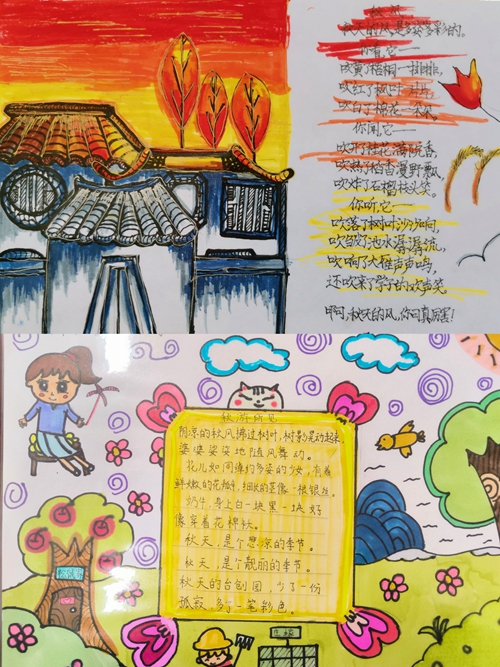 秋风
秋天的风,是多姿多彩的。
你看,它——
吹黄了梧桐一排排,
吹红了枫叶
吹白了棉花一朵朵。
你闻,它——
吹开了桂花满院香,
吹熟了稻香漫野飘,
吹炸了石榴枝头笑。
你听,它——
吹落了树叶沙沙响,
吹皱了池水潺潺流,
吹响了大雁声声鸣,
还吹来了学子的欢声笑
啊,秋天的风,你可真厉害!
秋游所见
阴凉的秋风拂过树叶,树影晃动起来
婆婆娑娑地随风舞动。
花儿如同绰约多姿的少女,有着
鲜嫩的花瓣,细长的茎像一根银丝
奶牛,身上白一块黑一块,好
像穿着花棉袄。
秋天,是个悲凉的季节。
秋天,是个靓丽的季节。
秋天的台创园,少了一份
孤寂,多了一笔彩色。